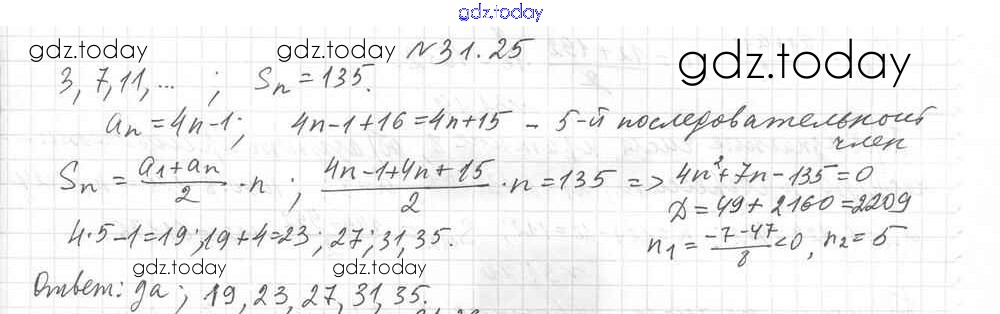 gdz.today
gdz.today gdz.today №31.25 gdz.today
3, 7, 11, ... ; Sn = 135.
an = 4n-1; 4n-1+16 = 4n+15 - 5-й последовательный член
Sn = (a1+an)/2 · n ; (4n-1+4n+15)/2 · n = 135 => 4n²+7n-135=0
D = 49+2160 = 2209
4·5-1=19; 19+4=23; 27; 31, 35.
n1 = (-7-47)/8 < 0, n2 = 5
gdz.today gdz.today
Ответ: да; 19, 23, 27, 31, 35.